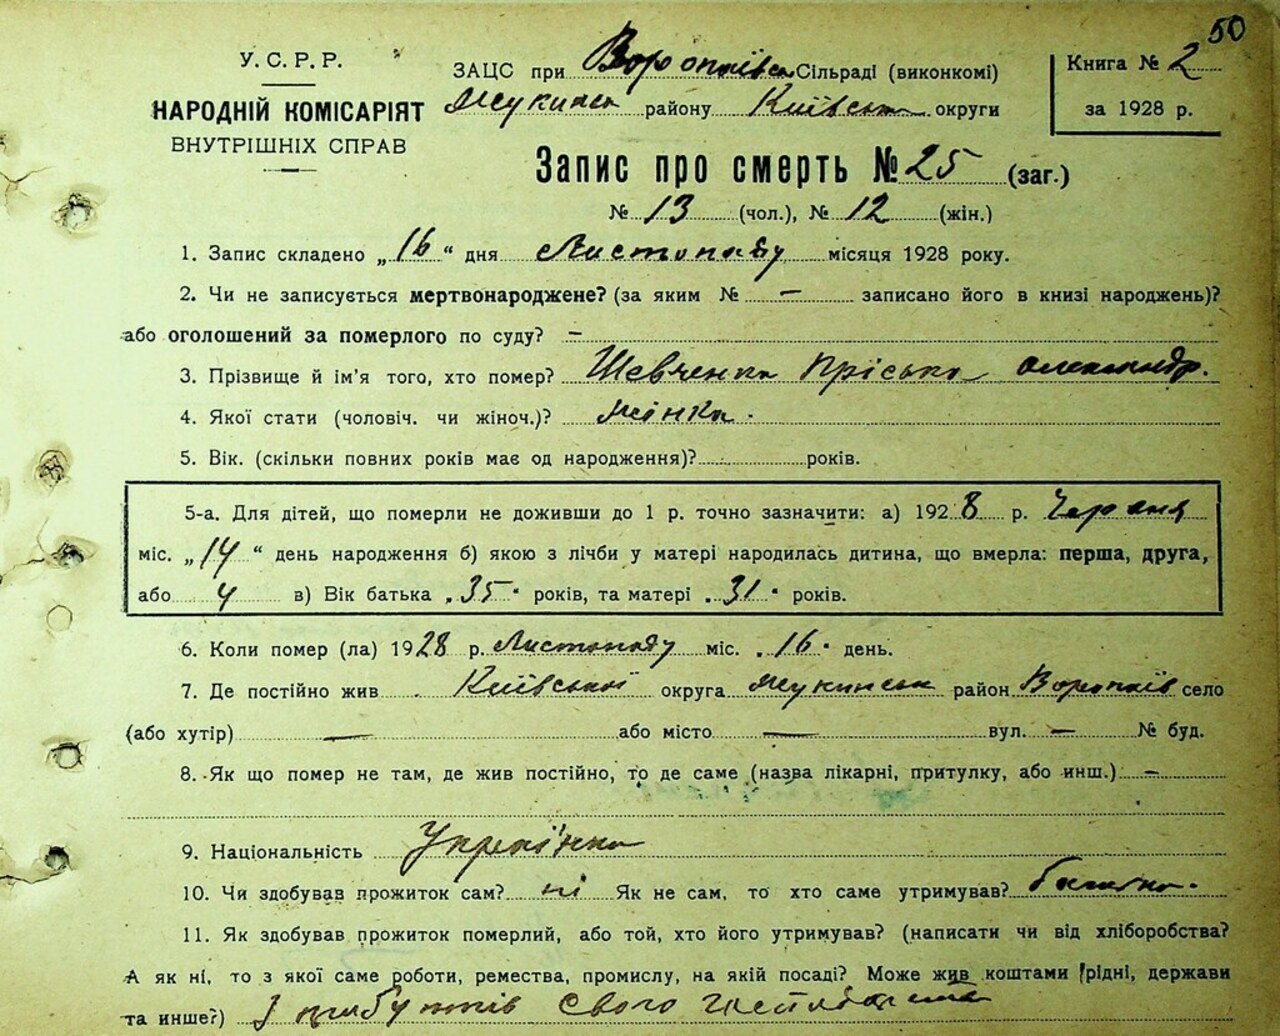 50
У. С. Р. Р.
НАРОДНІЙ КОМІСАРІЯТ
ВНУТРІШНІХ СПРАВ
ЗАЦС при Воропаївск Сільраді (виконкомі)
району Київськ округи
Книга № 2
за 1928 р.
Запис про смерть № 25 (заг.)
№ 13 (чол.), № 12 (жін.)
1. Запис складено „16“ дня Листопаду місяця 1928 року.
2. Чи не записується мертвонароджене? (за яким № — записано його в книзі народжень)?
або оголошений за померлого по суду? —
3. Прізвище й ім'я того, хто помер? Шевченко Пріська Олександр.
4. Якої стати (чоловіч. чи жіноч.)? жінка.
5. Вік. (скільки повних років має од народження)? років.
5-а. Для дітей, що померли не доживши до 1 р. точно зазначити: а) 1928 р. Червня
міс. „14“ день народження б) якою з лічби у матері народилась дитина, що вмерла: перша, друга,
або 4 в) Вік батька „35“ років, та матері „31“ років.
6. Коли помер (ла) 1928 р. Листопаду міс. „16“ день.
7. Де постійно жив Київської округа район Воропаїв село
(або хутір) — або місто — вул. — № буд.
8. Як що помер не там, де жив постійно, то де саме (назва лікарні, притулку, або инш.) —
9. Національність Українка
10. Чи здобував прожиток сам? ні Як не сам, то хто саме утримував? батько.
11. Як здобував прожиток померлий, або той, хто його утримував? (написати чи від хліборобства?
А як ні, то з якої саме роботи, ремества, промислу, на якій посаді? Може жив коштами рідні, держави
та инше?) З прибутків свого господарства